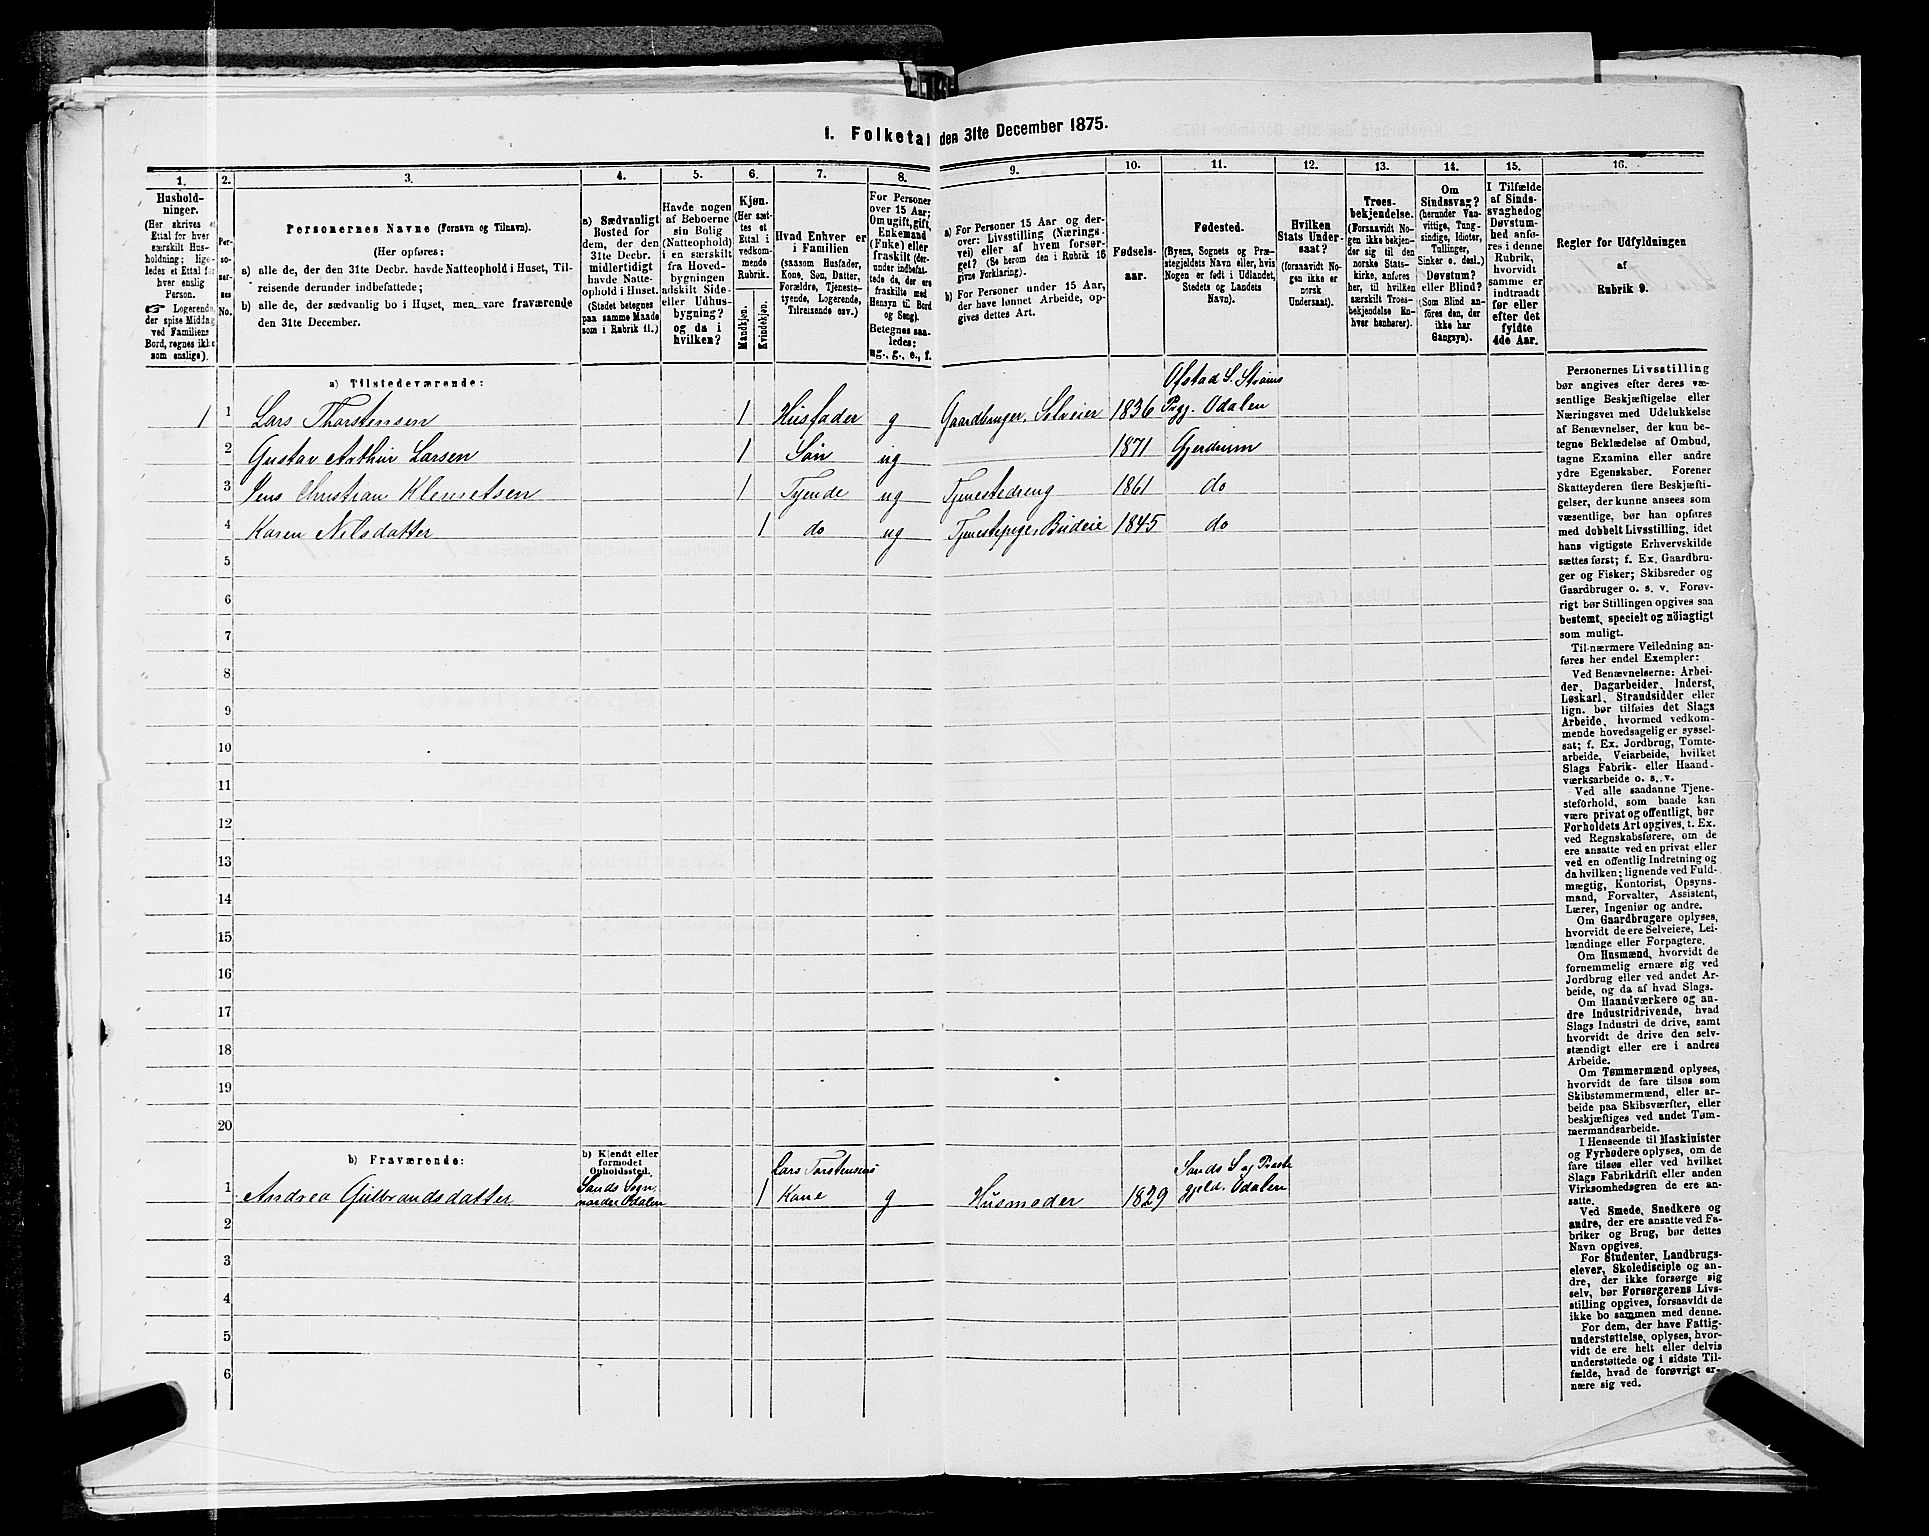 1. Folketal den 31te December 1875.
1. 2. 3. 4. 5. 6. 7. 8. 9. 10. 11. 12. 13. 14. 15. 16.
Hushold-
ninger.
(Her skrives et
Ettal for hver
særskilt Hus-
holdning; lige-
ledes et Ettal for
hver enslig
Person.
☞ Logerende,
der spise Middag
ved Familiens
Bord, regnes ikke
som enslige).
Per-
so-
ner-
nes
No.
Personernes Navne (Fornavn og Tilnavn).
(Her opføres:
a) alle de, der den 31te Decbr. havde Natteophold i Huset, Til-
reisende derunder indbefattede;
b) alle de, der sædvanlig bo i Huset, men vare fraværende
den 31te December.
a) Sædvanligt
Bosted for
dem, der den
31te Decbr.
midlertidigt
havde Natte-
ophold i Huset.
(Stedet betegnes
paa samme Maade
som i Rubrik 11.)
Havde nogen
af Beboerne
sin Bolig
(Natteophold)
i en særskilt
fra Hoved-
bygningen
adskilt Side-
eller Udhus-
bygning?
og da i
hvilken?
Kjøn.
(Her sæt-
tes et
Ettal i
vedkom-
mende
Rubrik.)
Mandkjøn.
Kvindekjøn.
Hvad Enhver er
i Familien
(saasom Husfader,
Kone, Søn, Datter,
Forældre, Tjeneste-
tyende, Logerende,
Tilreisende osv.)
For Personer
over 15 Aar;
Om ugift, gift,
Enkemand
(Enke) eller
fraskilt (der-
under indbefat-
tede de, der ere
fraskilte med
Hensyn til Bord
og Seng).
Betegnes saa-
ledes:
ug., g., e., f.
a) For Personer 15 Aar og der-
over: Livsstilling (Nærings-
vei) eller af hvem forsør-
get? (Se herom den i Rubrik 16
givne Forklaring).
b) For Personer under 15 Aar,
der have lønnet Arbeide, op-
gives dettes Art.
Fødsels-
aar.
Fødested.
(Byens, Sognets og Præ-
stegjeldets Navn eller, hvis
Nogen er født i Udlandet,
Stedets og Landets
Navn).
Hvilken
Stats Under-
saat?
(forsaavidt No-
gen ikke er
norsk
Undersaat).
Troes-
bekjendelse.
(Forsaavidt No-
gen ikke bekjen-
der sig til den
norske Stats-
kirke, anføres
her, til hvilken
særskilt Troes-
bekjendelse En-
hver henhører).
Om
Sindssvag?
(herunder Van-
vittige, Tung-
sindige, Idioter,
Tullinger,
Sinker o. desl.)
Døvstum?
eller Blind?
(Som Blind an-
føres den, der
ikke har
Gangsyn).
I Tilfælde
af Sinds-
svaghed og
Døvstum-
hed anfø-
res i denne
Rubrik,
hvorvidt
samme er
indtraadt
før eller
efter det
fyldte
4de Aar.
Regler for Udfyldningen
af
Rubrik 9.
a) Tilstedeværende:
1 1 Lars Thorstensen 1 Husfader g Gaardbruger, Selveier 1836 Ofstad S. Strøms
Prgj. Odalen
2 Gustav Arthur Larsen 1 Søn ug 1871 Gjerdrum
3 Jens Christian Klemetsen 1 Tyende ug Tjenestedreng 1861 do
4 Karen Nilsdatter 1 do ug Tjenestepige, Budeie 1845 do
5
6
7
8
9
10
11
12
13
14
15
16
17
18
19
20
b) Fraværende:
b) Kjendt eller
formodet
Opholdssted.
1 Andrea Gulbrandsdatter Sands Sogn,
nordre Odalen 1 Lars Torstensens
Kone g Husmoder 1829 Sands S. og Præste
gjeld. Odalen
2
3
4
5
6
Personernes Livsstilling
bør angives efter deres væ-
sentlige Beskjæftigelse eller
Næringsvei med Udelukkelse
af Benævnelser, der kun be-
tegne Beklædelse af Ombud,
tagne Examina eller andre
ydre Egenskaber. Forener
Skatteyderen flere Beskjæfti-
gelser, der kunne ansees som
væsentlige, bør han opføres
med dobbelt Livsstilling, idet
hans vigtigste Erhvervskilde
sættes først; f. Ex. Gaardbru-
ger og Fisker; Skibsreder og
Gaardbruger o. s. v. Forøv-
rigt bør Stillingen opgives saa
bestemt, specielt og nöiagtigt
som muligt.
Til nærmere Veiledning an-
føres her endel Exempler:
Ved Benævnelserne: Arbei-
der, Dagarbeider, Inderst,
Løskarl, Strandsidder eller
lign. bør tilføies det Slags
Arbeide, hvormed vedkom-
mende hovedsagelig er syssel-
sat; f. Ex. Jordbrug, Tomte-
arbeide, Veiarbeide, hvilket
Slags Fabrik- eller Haand-
værksarbeide o. s. v.
Ved alle saadanne Tjene-
steforhold, som baade kan
være privat og offentligt, bør
Forholdets Art opgives, t. Ex.
ved Regnskabsførere, om de
ere ansatte ved en privat eller
ved en offentlig Indretning og
da hvilken; lignende ved Fuld-
mægtig, Kontorist, Opsyns-
mand, Forvalter, Assistent,
Lærer, Ingeniør og andre.
Om Gaardbrugere oplyses,
hvorvidt de ere Selveiere, Lei-
lændinge eller Forpagtere.
Om Husmænd, hvorvidt de
fornemmelig ernære sig ved
Jordbrug eller ved andet Ar-
beide, og da af hvad Slags.
Om Haandværkere og an-
dre Industridrivende, hvad
Slags Industri de drive, samt
hvorvidt de drive den selv-
stændigt eller ere i andres
Arbeide.
Om Tømmermænd oplyses,
hvorvidt de fare tilsøs som
Skibstømmermænd, eller ar-
beide paa Skibsværfter, eller
beskjæftiges ved andet Tøm-
mermandsarbeide.
I Henseende til Maskinister
og Fyrbødere oplyses, om de
fare tilsøs eller ved hvilket
Slags Fabrikdrift eller anden
Virksomhedsgren de ere an-
satte.
Ved Smede, Snedkere og
andre, der ere ansatte ved Fa-
briker og Brug, bør dettes
Navn opgives.
For Studenter, Landbrugs-
elever, Skoledisciple og an-
dre, der ikke forsørge sig
selv, bør Forsørgerens Livs-
stilling opgives, forsaavidt de
ikke bo sammen med denne.
For dem, der have Fattig-
understøttelse, oplyses, hvor-
vidt de ere helt eller delvis
understøttede og i sidste Til-
fælde, hvad de forøvrigt er-
nære sig ved.